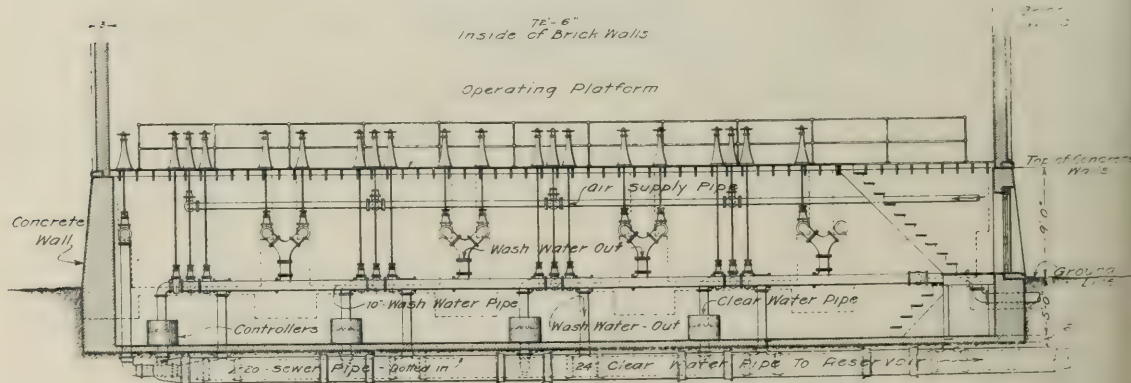 3
72'-6"
Inside of Brick Walls
Operating Platform
Top of Concrete
Walls
Air Supply Pipe
Concrete
Wall
9'0"
Wash Water Out
Ground
Line
10" Wash Water Pipe
Clear Water Pipe
Controllers
Wash Water-Out
5'0"
20" Sewer Pipe - Dotted in
24" Clear Water Pipe To Reservoir